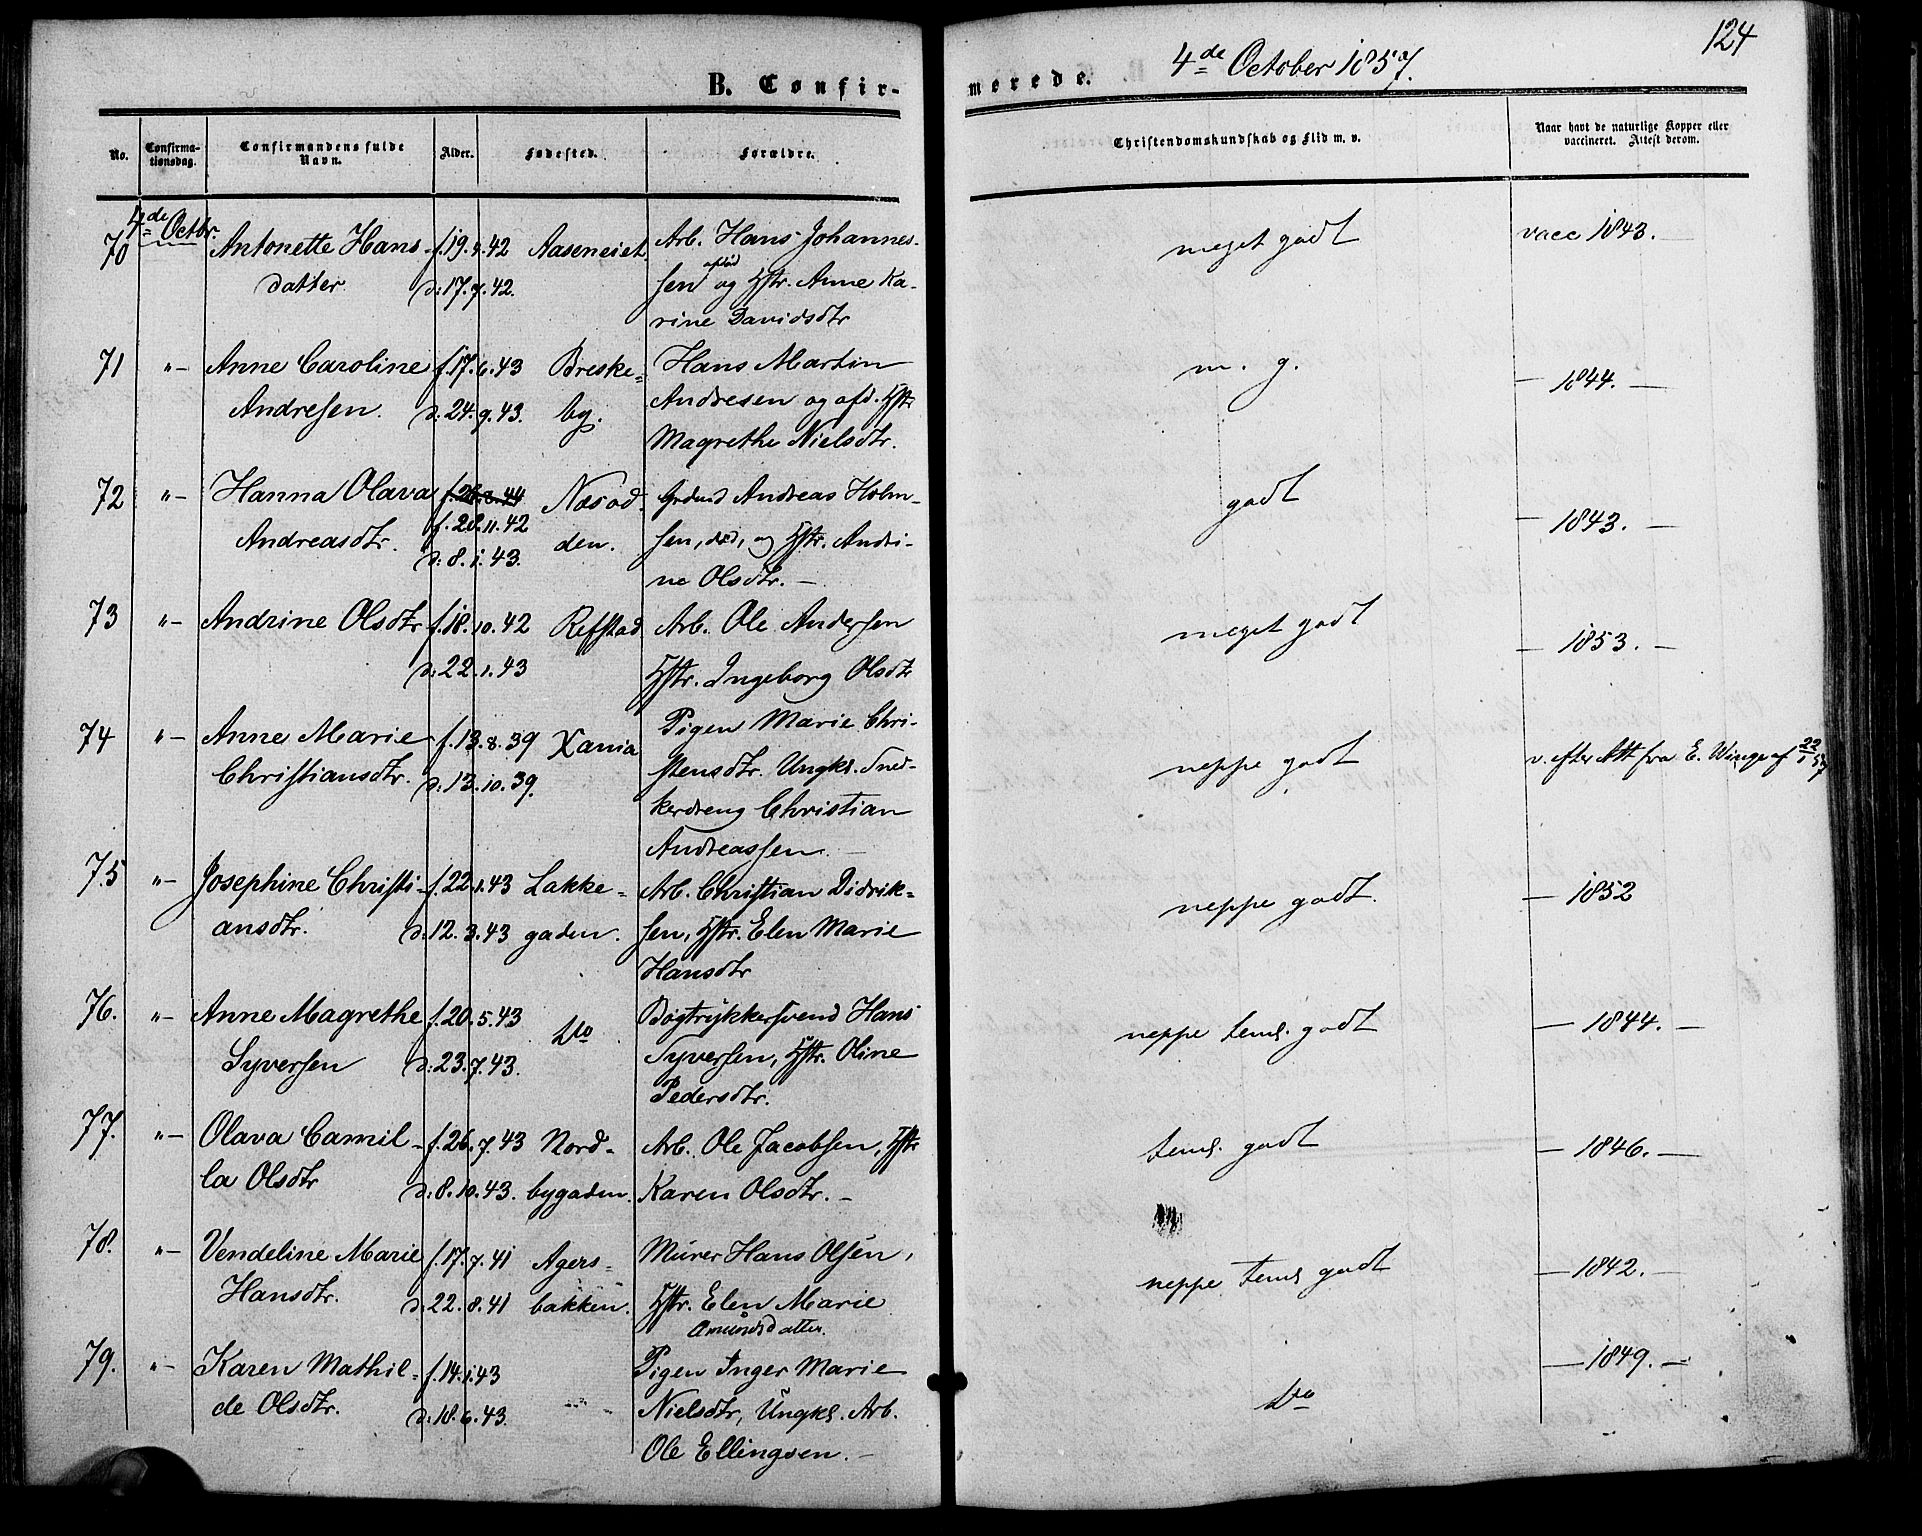 124
4de October 1857.
B. Confir-
morede.
No.
Confirma-
tionsdag.
Confirmandens fulde
Navn.
Alder.
Fødested.
Forældre.
Christendomskundskab og Flid m. v.
Naar havt de naturlige Kopper eller
vaccineret. Attest derom.
4de Octbr.
70 Antonette Hans- f. 19. 4. 42 Aaseneiet. Arb. Hans Johannes- meget godt vacc 1843. —
datter d: 17. 7. 42. sen afdød og Hstr. Anne Ka-
rine Davidsdtr
71 "– Anne Caroline f. 17. 6. 43 Breske= Hans Martin m. g. — 1844. —
Andresen. d. 24. 9. 43. by. Andresen og afd. Hstr
Magrethe Nielsdtr.
72 "– Hanna Olava f. 26. 8. 44 Næsod- Andreas Holm- godt — 1843. —
f. 28. 11. 42
Andreasdtr. d: 8. 1. 43. den. sen, død, og Hstr. Andri-
ne Olsdtr. —
73 "– Andrine Olsdtr f. 18. 10. 42 Refstad Arb. Ole Andersen meget godt — 1853. —
d: 22. 1. 43 Hstr. Ingeborg Olsdtr
74 "– Anne Marie f. 13. 8. 39 Xania Pigen Marie Chri- neppe godt v. efter Att fra E. Winge af 22/1 57
Christiansdtr. d. 13. 10. 39. stensdtr. Ungkl. Sned-
kerdreng Christian
Andreassen. —
75 "– Josephine Christi- f. 22. 1. 43 Lakke= Arb. Christian Didrik= neppe godt. — 1852
ansdtr. d. 12. 3. 43 gaden. sen, Hstr. Elen Marie
Hansdtr
76. "– Anne Magrethe f. 20. 5. 43 Do Bogtrykkersvend Hans neppe teml. godt — 1844. —
Syversen d: 23. 7. 43. Syversen, Hstr. Oline
Pedersdtr.
77. "– Olava Camil- f. 26. 7. 43 Nord- Arb. Ole Jacobsen, Hstr teml. godt — 1846. —
la Olsdtr d: 8. 10. 43. bygaden. Karen Olsdtr. —
78. "– Vendeline Marie f. 17. 7. 41 Agers- Murer Hans Olsen, neppe teml godt — 1842. —
Hansdtr. d: 22. 8. 41 bakken. Hstr. Elen Marie
Amundsdatter.
79. "– Karen Mathil- f. 14. 1. 43 Pigen Inger Marie Do — 1849. —
de Olsdtr. d: 18. 6. 43. Nielsdtr, Ungkl. Arb.
Ole Ellingsen. —